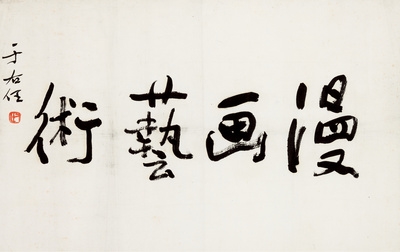 漫画藝術
于右任